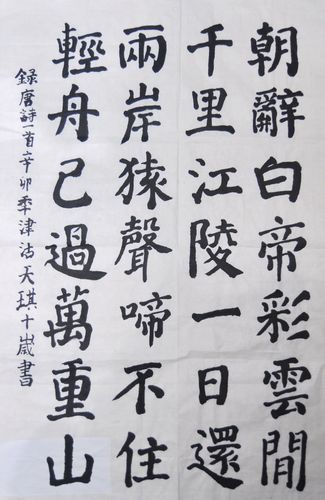 朝辭白帝彩雲間
千里江陵一日還
兩岸猿聲啼不住
輕舟已過萬重山
録唐詩一首辛卯季津沽天琪十歲書